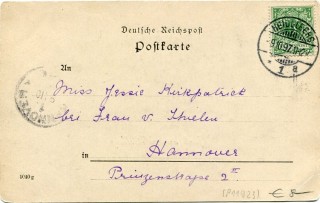 Deutsche Reichspost
Postkarte
An
Miss Jessie Kirkpatrick
bei Frau v. Thielen
in Hannover
Prinzenstrasse 2
1040g
€ 8-